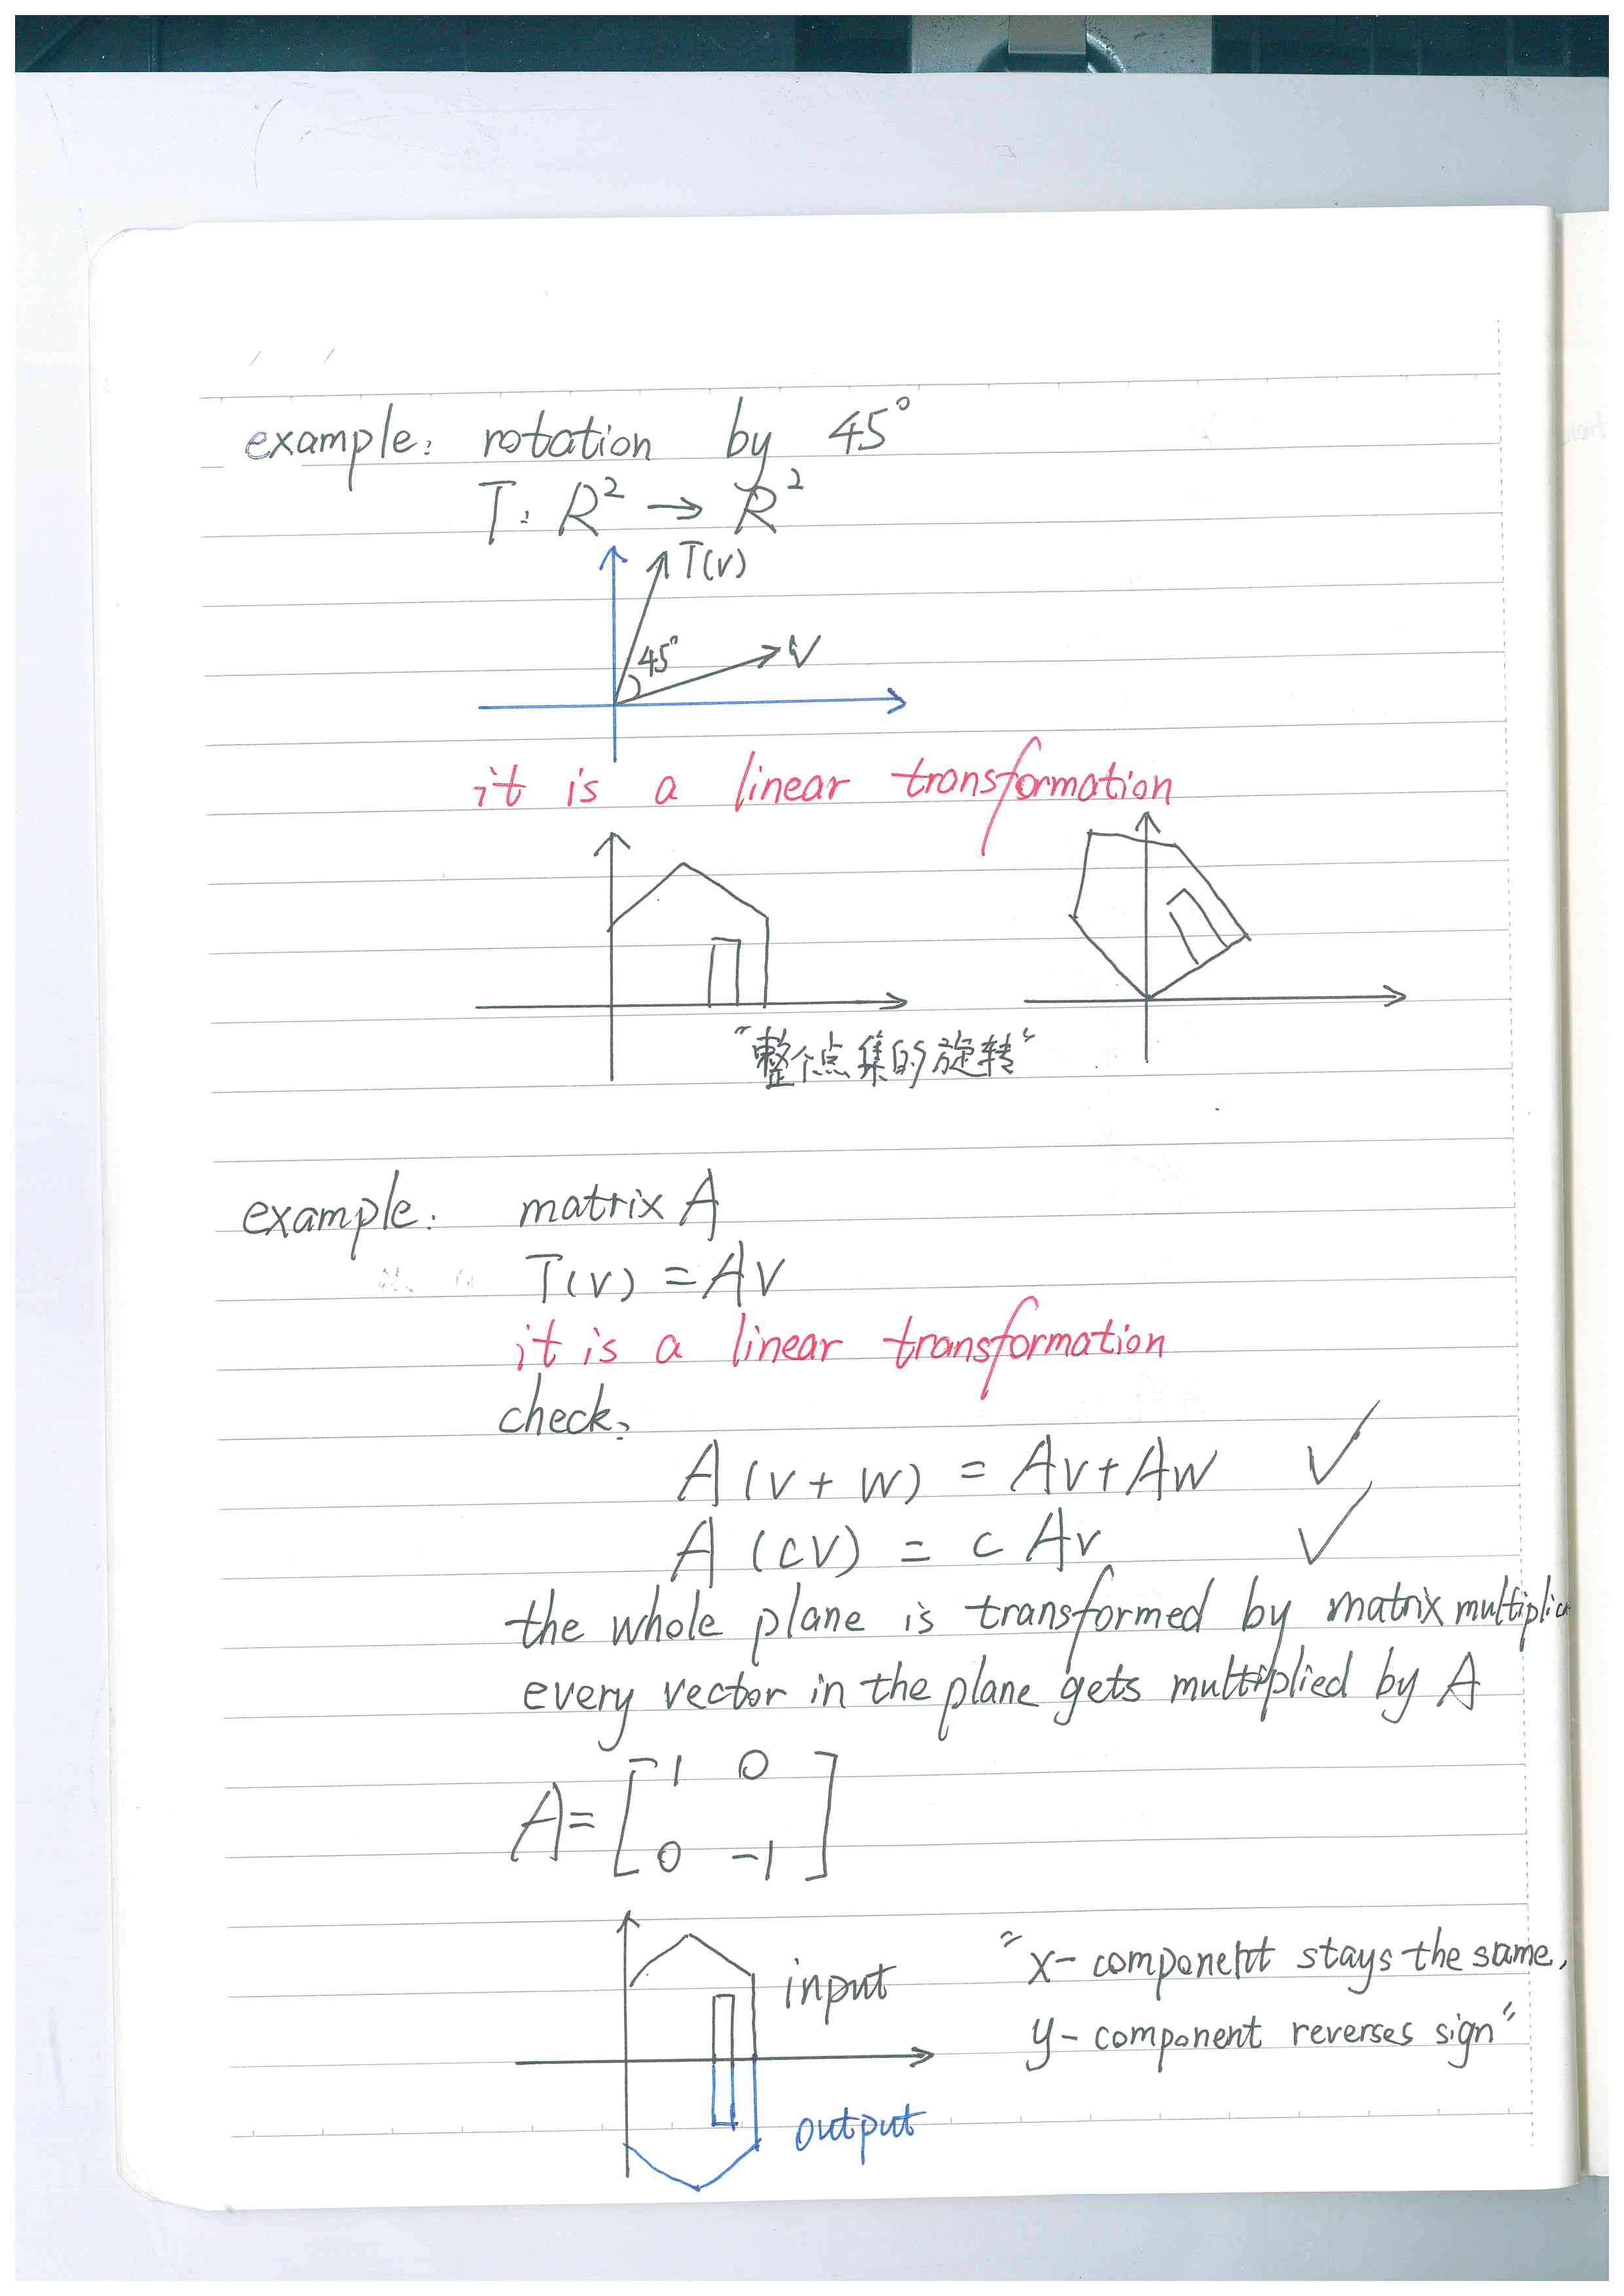 example: rotation by 45°
T: R² → R²
T(v)
45°
v
it is a linear transformation
"整个点集的旋转"
example: matrix A
T(v) = Av
it is a linear transformation
check:
A(v+w) = Av+Aw ✓
A(cv) = c Av ✓
the whole plane is transformed by matrix multiplic
every vector in the plane gets multiplied by A
A= [1 0
0 -1]
input
"x-component stays the same,
y-component reverses sign"
output